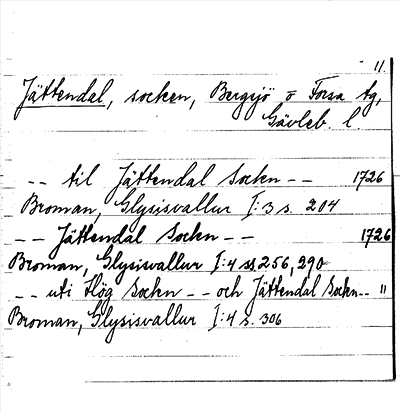 11.
Jättendal, socken, Bergsjö o Forsa tg,
Gävleb. l.
-- til Jättendal Sockn -- 1726
Broman, Glysisvallur I:3 s. 204
-- Jättendal Sockn -- 1726
Broman, Glysisvallur I:4 ss 256, 290
-- uti Hög Sockn -- och Jättendal Sockn -- "
Broman, Glysisvallur I:4 s. 306